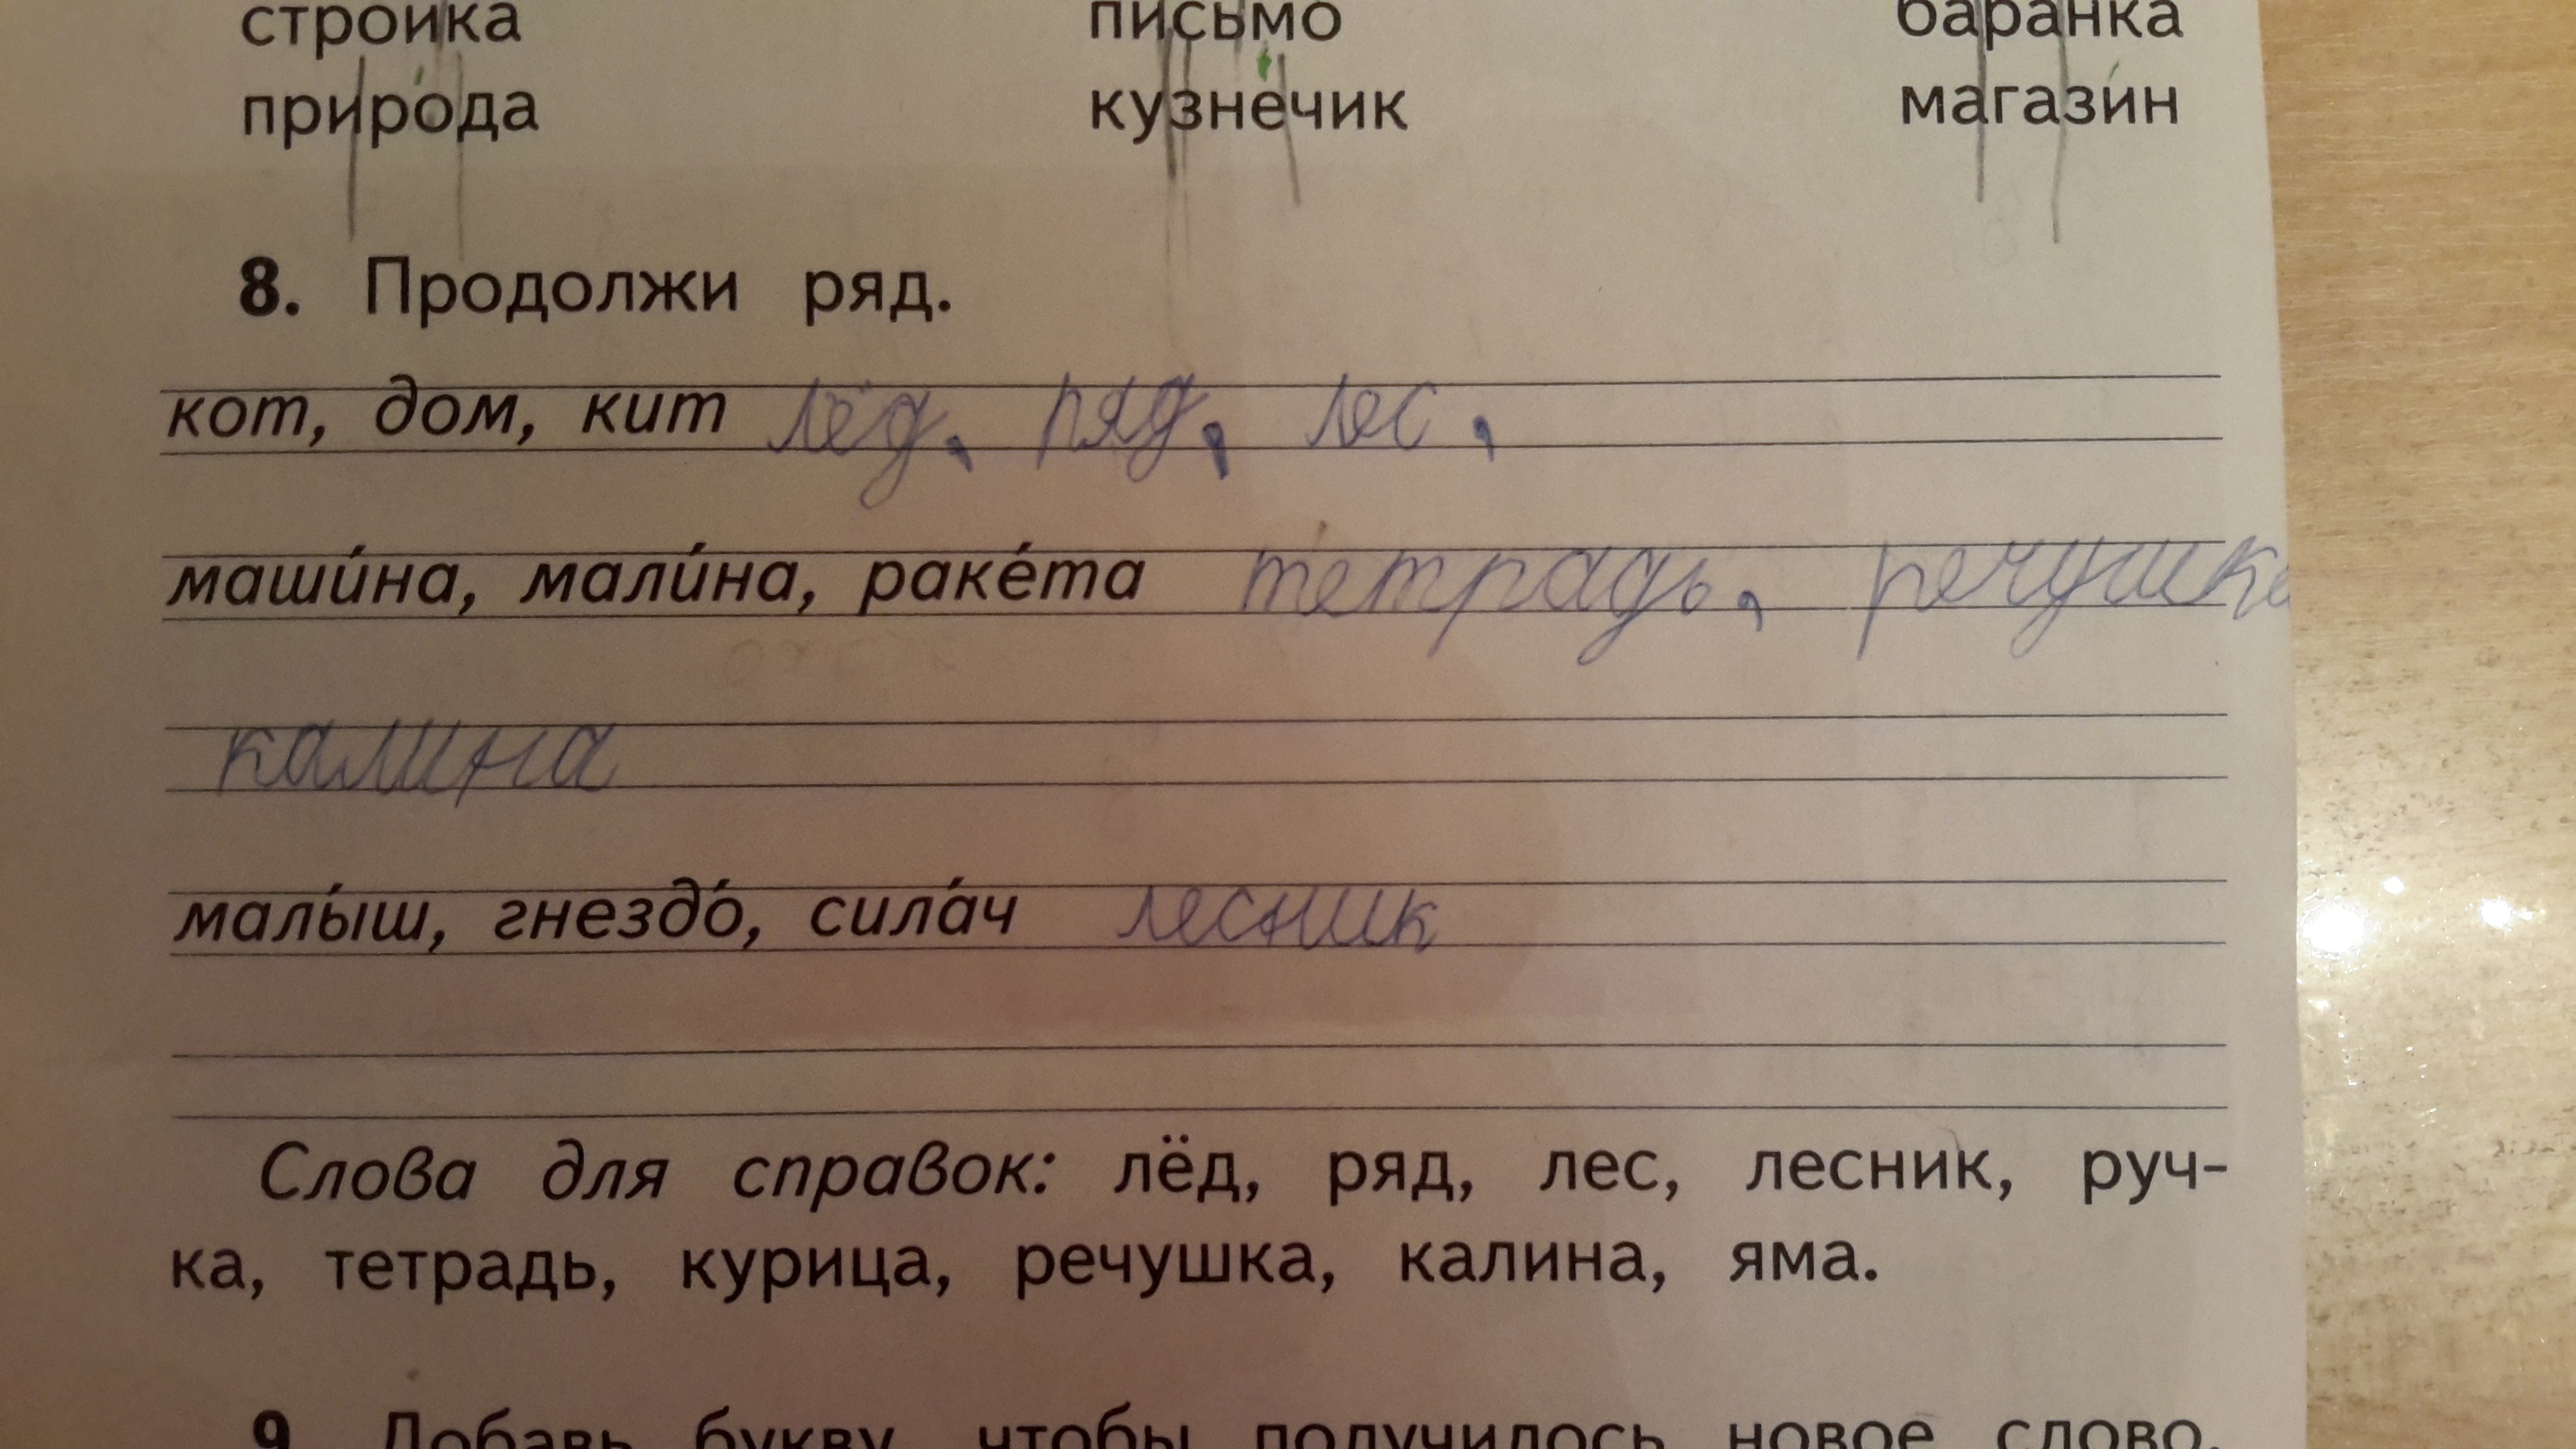 стройка письмо баранка
природа кузнечик магазин
8. Продолжи ряд.
кот, дом, кит лёд, ряд, лес,
маши́на, мали́на, раке́та тетрадь, речушка
калина
малы́ш, гнездо́, сила́ч лесник
Слова для справок: лёд, ряд, лес, лесник, руч-
ка, тетрадь, курица, речушка, калина, яма.
9. Добавь букву, чтобы получилось новое слово.